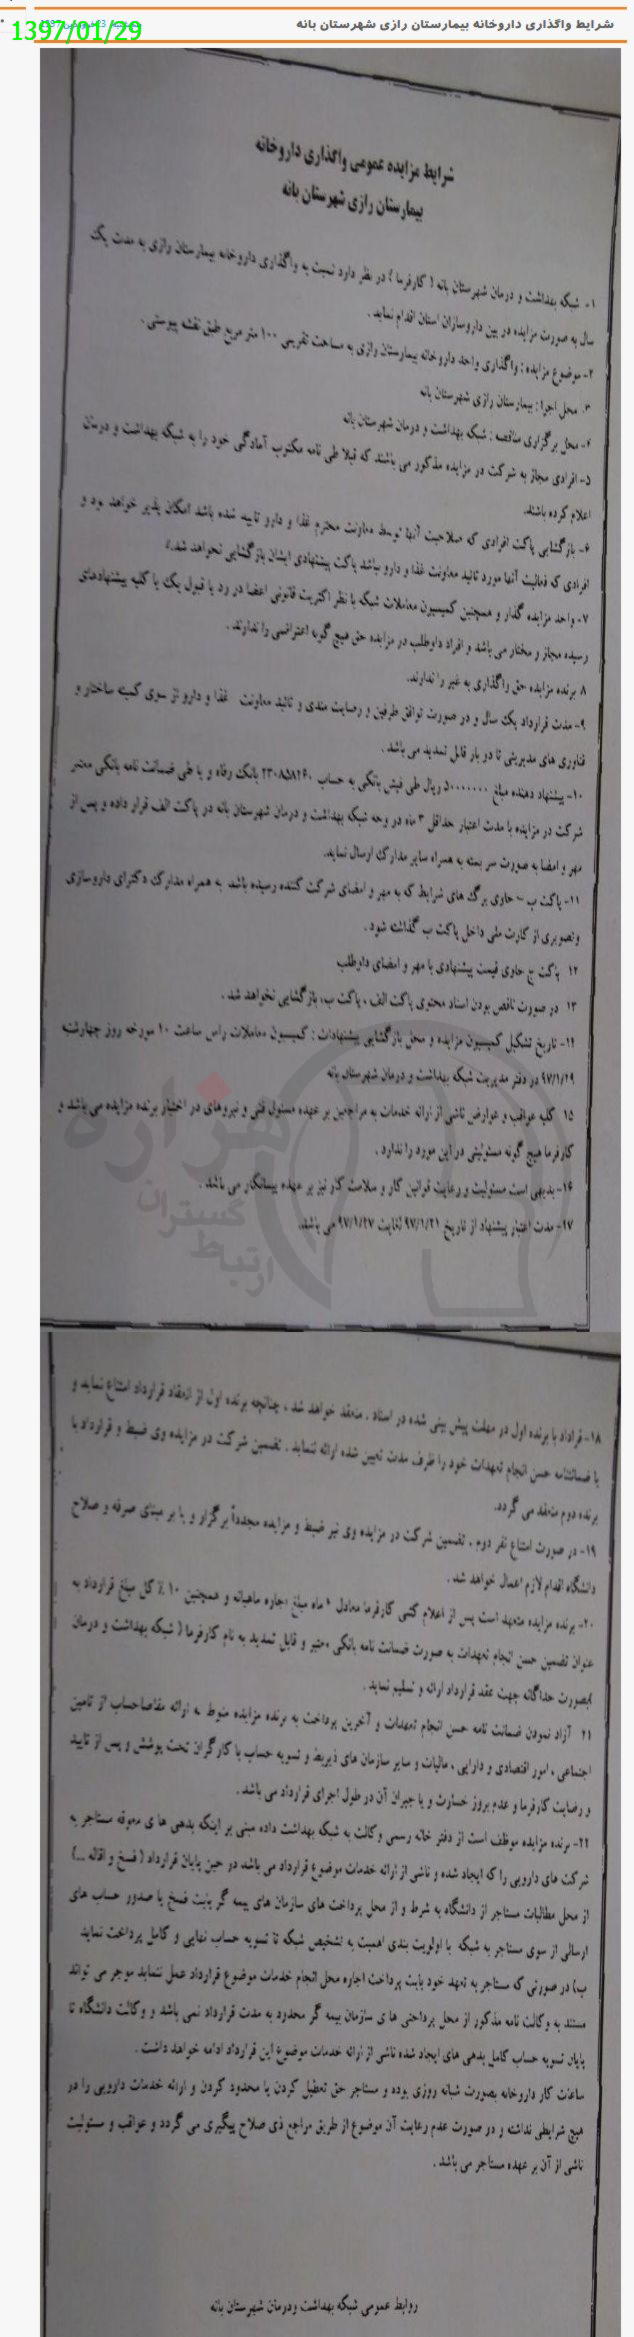 شرایط واگذاری داروخانه بیمارستان رازی شهرستان بانه
1397/01/29
شرایط مزایده عمومی واگذاری داروخانه
بیمارستان رازی شهرستان بانه
۱- شبکه بهداشت و درمان شهرستان بانه ( کارفرما ) در نظر دارد نسبت به واگذاری داروخانه بیمارستان رازی به مدت یک
سال به صورت مزایده در بین داروسازان استان اقدام نماید .
۲- موضوع مزایده : واگذاری واحد داروخانه بیمارستان رازی به مساحت تقریبی ۱۰۰ متر مربع طبق نقشه پیوستی .
۳- محل اجرا : بیمارستان رازی شهرستان بانه
۴- محل برگزاری مناقصه : شبکه بهداشت و درمان شهرستان بانه
۵- افرادی مجاز به شرکت در مزایده مذکور می باشند که قبلا طی نامه مکتوب آمادگی خود را به شبکه بهداشت و درمان
اعلام کرده باشند.
۶- بازگشایی پاکت افرادی که صلاحیت آنها توسط معاونت محترم غذا و دارو تایید شده باشد امکان پذیر خواهد بود و
افرادی که فعالیت آنها مورد تائید معاونت غذا و دارو نباشد پاکت پیشنهادی ایشان بازگشایی نخواهد شد.
۷- واحد مزایده گذار و همچنین کمیسیون معاملات شبکه با نظر اکثریت قانونی اعضا در رد یا قبول یک یا کلیه پیشنهادهای
رسیده مجاز و مختار می باشد و افراد داوطلب در مزایده حق هیچ گونه اعتراضی را ندارند .
۸ برنده مزایده حق واگذاری به غیر را ندارند.
۹- مدت قرارداد یک سال و در صورت توافق طرفین و رضایت مندی و تائید معاونت غذا و دارو از سوی کمیته ساختار و
فناوری های مدیریتی تا دو بار قابل تمدید می باشد .
۱۰- پیشنهاد دهنده مبلغ ۵۰۰۰۰۰۰۰ ریال طی فیش بانکی به حساب ۲۳۰۸۵۸۲۶۰ بانک رفاه و یا طی ضمانت نامه بانکی معتبر
شرکت در مزایده با مدت اعتبار حداقل ۳ ماه در وجه شبکه بهداشت و درمان شهرستان بانه در پاکت الف قرار داده و پس از
مهر و امضا به صورت سر بسته به همراه سایر مدارک ارسال نماید.
۱۱- پاکت ب – حاوی برگ های شرایط که به مهر و امضای شرکت کننده رسیده باشد به همراه مدارک دکترای داروسازی
وتصویری از کارت ملی داخل پاکت ب گذاشته شود .
۱۲ پاکت ج حاوی قیمت پیشنهادی با مهر و امضای داوطلب
۱۳ در صورت ناقص بودن اسناد محتوی پاکت الف ، پاکت ب، بازگشایی نخواهد شد .
۱۴- تاریخ تشکیل کمیسیون مزایده و محل بازگشایی پیشنهادات : کمیسیون معاملات راس ساعت ۱۰ مورخه روز چهارشنبه
۹۷/۱/۲۹ در دفتر مدیریت شبکه بهداشت و درمان شهرستان بانه
۱۵ کلیه عواقب و عوارض ناشی از ارائه خدمات به مراجعین بر عهده مسئول فنی و نیروهای در اختیار برنده مزایده می باشد و
کارفرما هیچ گونه مسئولیتی در این مورد را ندارد .
۱۶- بدیهی است مسئولیت و رعایت قوانین کار و سلامت کار نیز بر عهده پیمانکار می باشد .
۱۷- مدت اعتبار پیشنهاد از تاریخ ۹۷/۱/۲۱ لغایت ۹۷/۱/۲۷ می باشد.
هزاره
گستران
ارتباط
۱۸- قراداد با برنده اول در مهلت پیش بینی شده در اسناد . منعقد خواهد شد ، چنانچه برنده اول از انعقاد قرارداد امتناع نماید و
یا ضمانتنامه حسن انجام تعهدات خود را ظرف مدت تعیین شده ارائه ننماید . تضمین شرکت در مزایده وی ضبط و قرارداد با
برنده دوم منعقد می گردد.
۱۹- در صورت امتناع نفر دوم . تضمین شرکت در مزایده وی نیز ضبط و مزایده مجدداً برگزار و یا بر مبنای صرفه و صلاح
دانشگاه اقدام لازم اعمال خواهد شد .
۲۰- برنده مزایده متعهد است پس از اعلام کتبی کارفرما معادل ماه مبلغ اجاره ماهیانه و همچنین ۱۰ ٪ کل مبلغ قرارداد به
عنوان تضمین حسن انجام تعهدات به صورت ضمانت نامه بانکی معتبر و قابل تمدید به نام کارفرما ( شبکه بهداشت و درمان
)بصورت جداگانه جهت عقد قرارداد ارائه و تسلیم نماید .
۲۱ آزاد نمودن ضمانت نامه حسن انجام تعهدات و آخرین پرداخت به برنده مزایده منوط به ارائه مفاصاحساب از تامین
اجتماعی ، امور اقتصادی و دارایی ، مالیات و سایر سازمان های ذیربط و تسویه حساب با کارگران تحت پوشش و پس از تایید
و رضایت کارفرما و عدم بروز خسارت و یا جبران آن در طول اجرای قرارداد می باشد .
۲۲- برنده مزایده موظف است از دفتر خانه رسمی وکالت به شبکه بهداشت داده مبنی بر اینکه بدهی ها ی معوقه مستاجر به
شرکت های دارویی را که ایجاد شده و ناشی از ارائه خدمات موضوع قرارداد می باشد در حین پایان قرارداد ( فسخ و اقاله ...)
از محل مطالبات مستاجر از دانشگاه به شرط و از محل پرداخت های سازمان های بیمه گر فسخ یا صدور حساب های
ارسالی از سوی مستاجر به شبکه با اولویت بندی اهمیت به تشخیص شبکه تا تسویه حساب نهایی و کامل پرداخت نماید
ب) در صورتی که مستاجر به تعهد خود بابت پرداخت اجاره محل انجام خدمات موضوع قرارداد عمل ننماید موجر می تواند
مستند به وکالت نامه مذکور از محل پرداختی ها ی سازمان بیمه گر محدود به مدت قرارداد نمی باشد و وکالت دانشگاه تا
پایان تسویه حساب کامل بدهی های ایجاد شده ناشی از ارائه خدمات موضوع این قرارداد ادامه خواهد داشت .
ساعات کار داروخانه بصورت شبانه روزی بوده و مستاجر حق تعطیل کردن یا محدود کردن و ارائه خدمات دارویی را در
هیچ شرایطی نداشته و در صورت عدم رعایت آن موضوع از طریق مراجع ذی صلاح پیگیری می گردد و عواقب و مسئولیت
ناشی از آن بر عهده مستاجر می باشد .
روابط عمومی شبکه بهداشت ودرمان شهرستان بانه